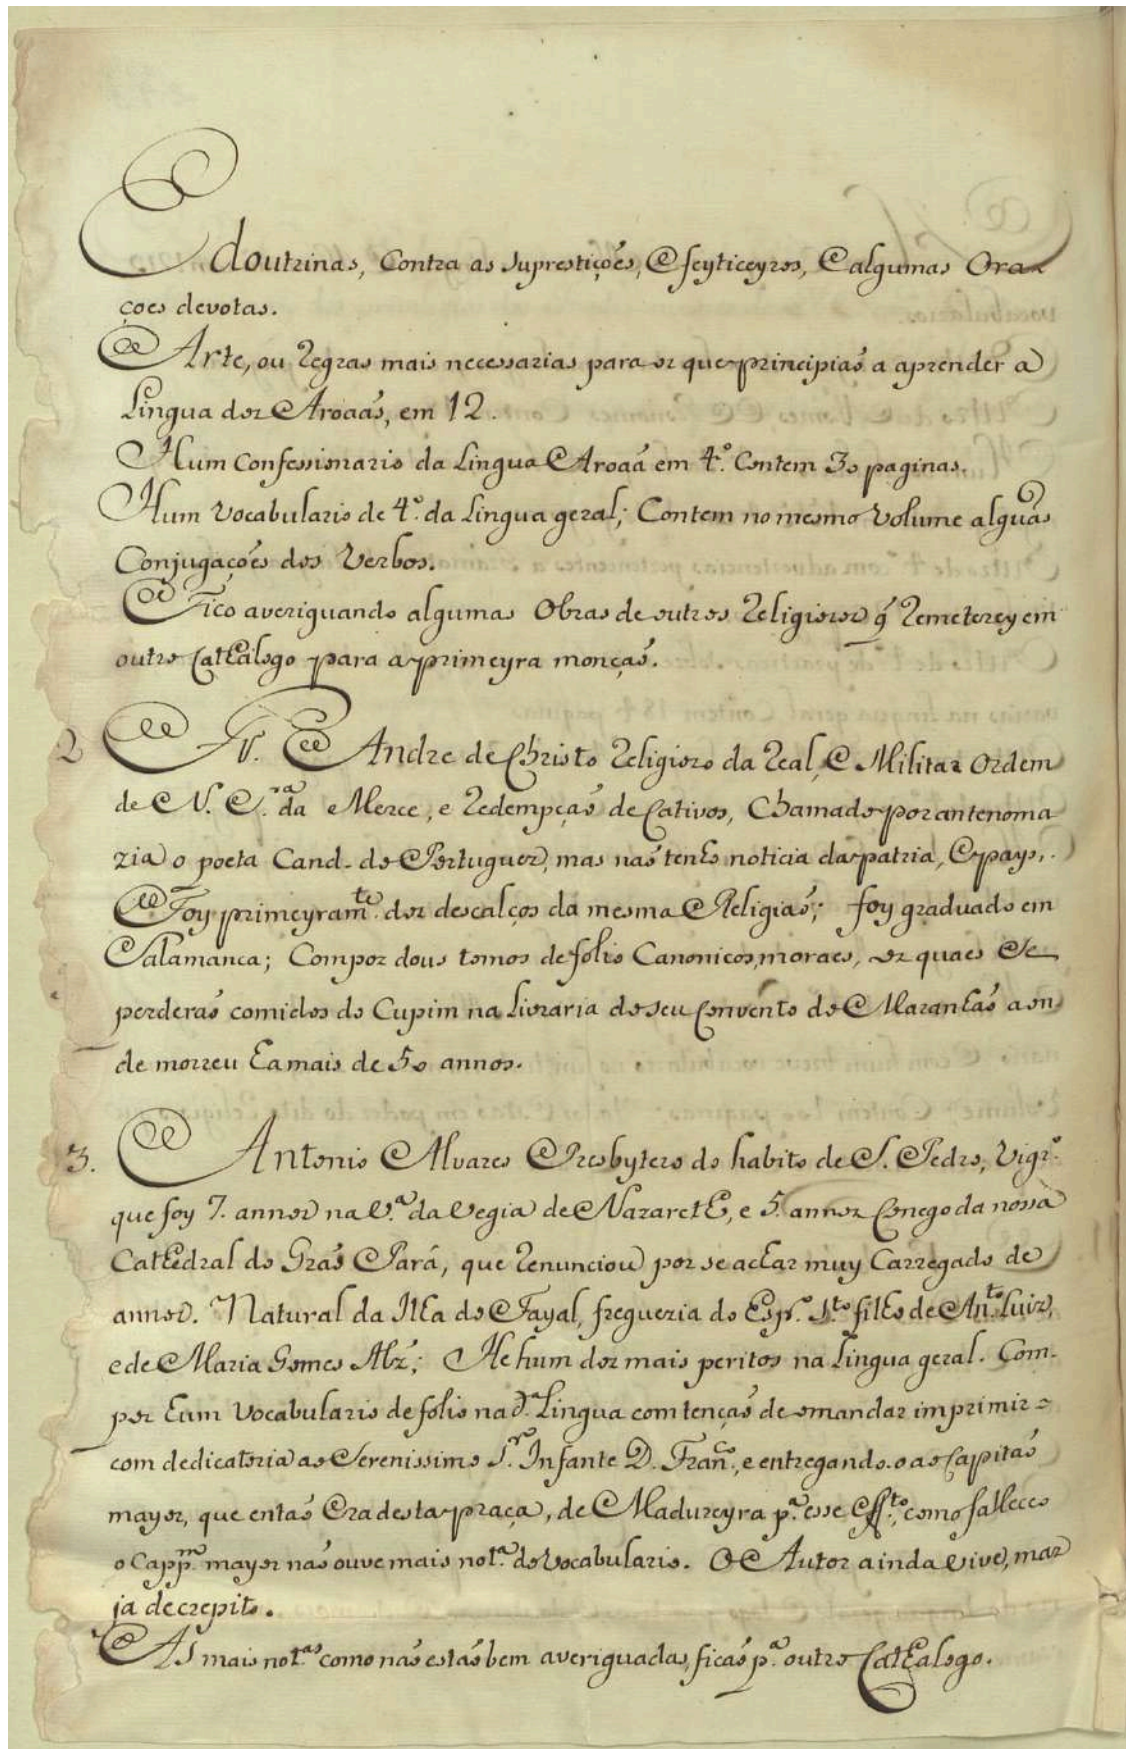 doutrinas, Contra as suprestições, e feyticeyros, e algumas Ora-
ções devotas.
Arte, ou regras mais necessarias para os que principiaõ a aprender a
Lingua dos Aroaãs, em 12.
Hum Confessionario da Lingua Aroaã em 4.º Contem 30 paginas.
Hum Vocabulario de 4.º da Lingua geral; Contem no mesmo volume alguãs
Conjugações dos Verbos.
Fico averiguando algumas Obras de outros Religiosos q̃ remeterey em
outro Cathalogo para a primeyra monçaõ.
2 Fr. Andre de Christo Religioso da Real, e Militar Ordem
de N. S.ra da Merce, e Redempçaõ de Cativos, Chamado por antenoma
zia o poeta Cand. do Portuguez, mas naõ tenho noticia da patria, e pays,.
Foy primeyramte. dos descalços da mesma Religiaõ; foy graduado em
Salamanca; Compoz dous tomos de folio Canonicos, moraes, os quaes se
perderaõ comidos do Cupim na Livraria do seu Convento do Maranhaõ aon
de morreu ha mais de 50 annos.
3. Antonio Alvares Presbytero do habito de S. Pedro, Vigr.º
que foy 7. annos na V.ª da Vegia de Nazareth, e 5. annos Conego da nossa
Cathedral do Graõ Pará, que renunciou por se achar muy Carregado de
annos. Natural da Ilha do Fayal, freguezia do Esp.º S.to filho de An.to Luiz,
e de Maria Gomes Alz̃; He hum dos mais peritos na Lingua geral. Com-
pos hum Vocabulario de folio na d.ª Lingua com tençaõ de o mandar imprimir=
com dedicatoria ao Serenissimo S.r Infante D. Fran.co, e entregando-o ao Capitaõ
mayor, que entaõ era desta praça, de Madureyra p.ª esse eff.to, como falleceo
o Capp.m mayor naõ ouve mais not.ª do Vocabulario. O Autor ainda vive, mas
ja decrepito.
As mais not.as como naõ estaõ bem averiguadas, ficaõ p.ª outro Cathalogo.